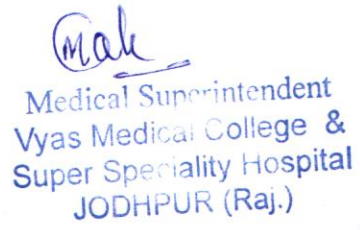 Medical Superintendent
Vyas Medical College &
Super Speciality Hospital
JODHPUR (Raj.)